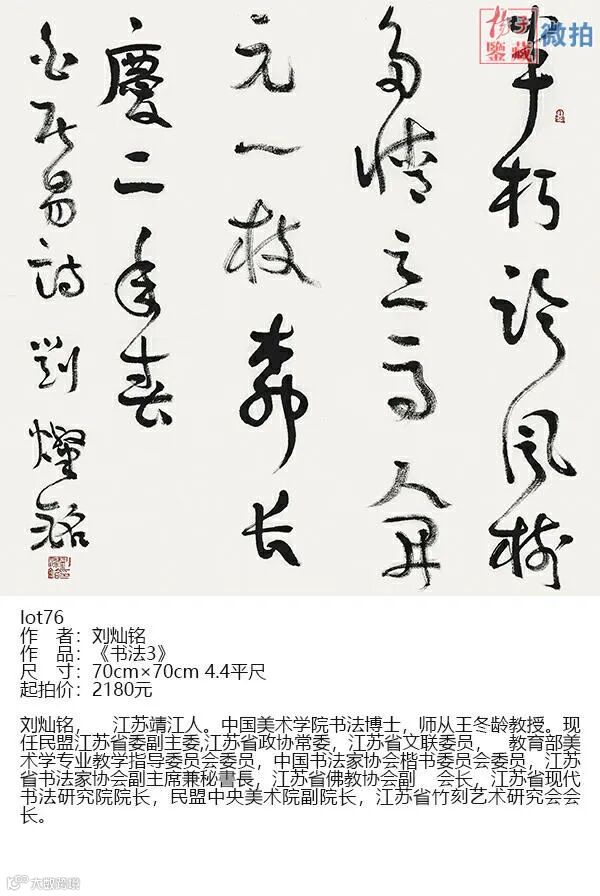 揚子鑒藏
微拍
半朽臨風樹
多情立馬人開
元一枝柳長
慶二年春
白居易詩 劉燦銘
lot76
作 者：刘灿铭
作 品：《书法3》
尺 寸：70cm×70cm 4.4平尺
起拍价：2180元
刘灿铭， 江苏靖江人。中国美术学院书法博士，师从王冬龄教授。现
任民盟江苏省委副主委,江苏省政协常委，江苏省文联委员， 教育部美
术学专业教学指导委员会委员，中国书法家协会楷书委员会委员，江苏
省书法家协会副主席兼秘書長，江苏省佛教协会副 会长，江苏省现代
书法研究院院长，民盟中央美术院副院长，江苏省竹刻艺术研究会会
长。
大数跨境